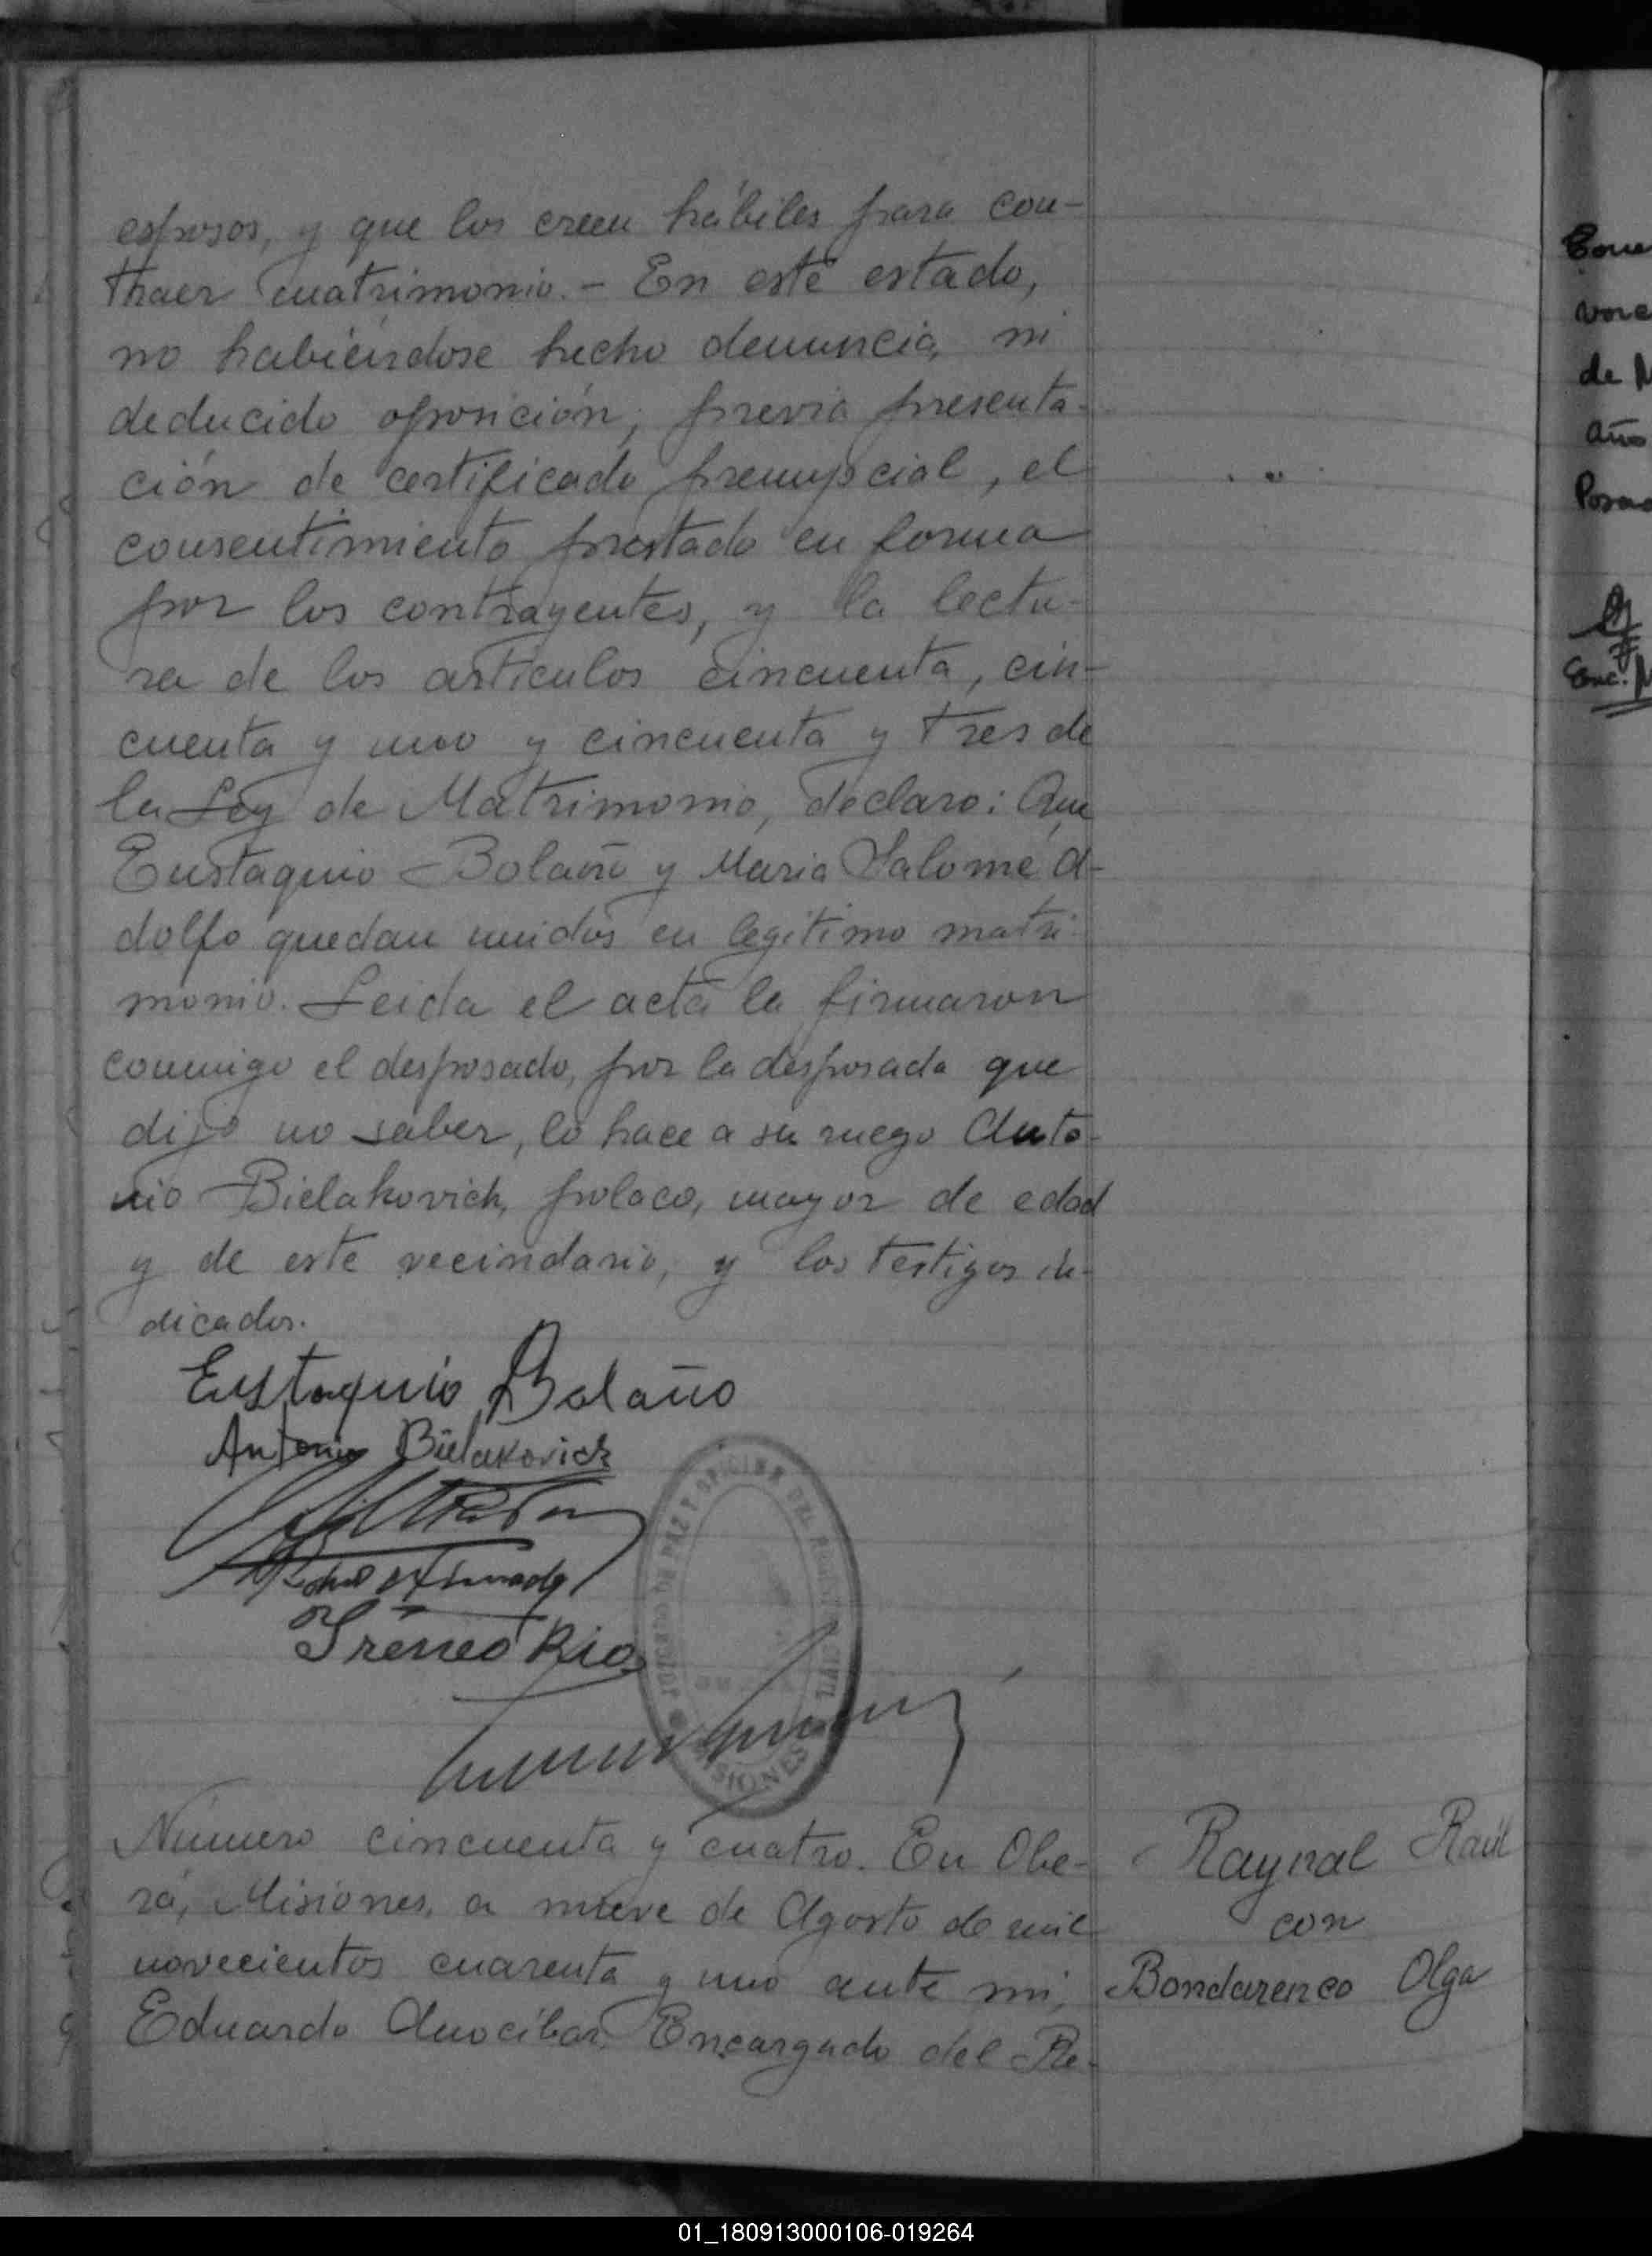 esposos, y que los creen hábiles para con-
traer matrimonio. - En este estado,
no habiéndose hecho denuncia, ni
deducido oposición, previa presenta-
ción de certificado prenupcial, el
consentimiento prestado en forma
por los contrayentes, y la lectu-
ra de los artículos cincuenta, cin-
cuenta y uno y cincuenta y tres de
la Ley de Matrimonio, declaro: Que
Eustaquio Bolaño y Maria Salomé A-
dolfo quedan unidos en legítimo matri-
monio. Leida el acta la firmaron
conmigo el desposado, por la desposada que
dijo no saber, lo hace a su ruego Anto-
nio Bielakovich, polaco, mayor de edad
y de este vecindario, y los testigos in-
dicados.
Eustaquio Bolaño
Antonio Bielakovich
Ireneo Rios
DE PAZ Y OFICINA DEL
MISIONES
Número cincuenta y cuatro. En Obe-
rá, Misiones, a nueve de Agosto de mil
novecientos cuarenta y uno ante mi,
Eduardo Anocibar, Encargado del Re-
Raynal Raúl
con
Bondarenco Olga
de
año
01_180913000106-019264